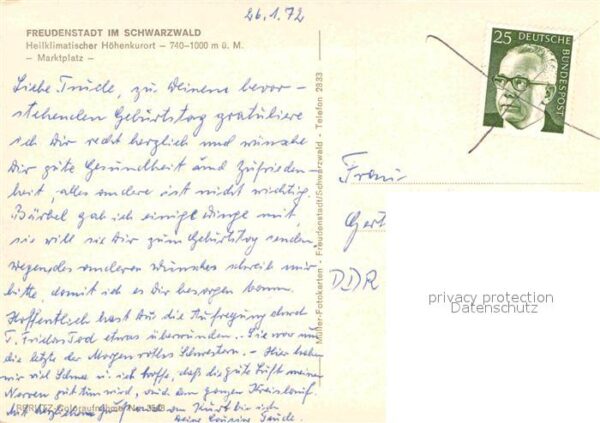 26.1.72
FREUDENSTADT IM SCHWARZWALD
Heilklimatischer Höhenkurort – 740–1000 m ü. M.
– Marktplatz –
Liebe Trude, zu Deinem bevor-
stehenden Geburtstag gratuliere
ich Dir recht herzlich und wünsche
Dir gute Gesundheit und Zufrieden-
heit, alles andere ist nicht wichtig.
Bärbel gab ich einige Dinge mit,
sie will sie Dir zum Geburtstag senden.
Wegen des anderen Wunsches schreib mir
bitte, damit ich es Dir besorgen kann.
Hoffentlich hast Du die Aufregung durch
T. Friedas Tod etwas überwunden. Sie war nun
die letzte der Morgenroths Schwestern. – Hier haben
wir viel Schnee u. ich hoffe, daß die gute Luft meinen
Nerven gut tun wird, und dem ganzen Kreislauf.
Mit herzlichen Grüßen von Kurt bin ich
Deine Cousine
Müller-Fotokarten - Freudenstadt/Schwarzwald - Telefon 2833
25
DEUTSCHE
BUNDESPOST
Frau
Gert
DDR
privacy protection
Datenschutz